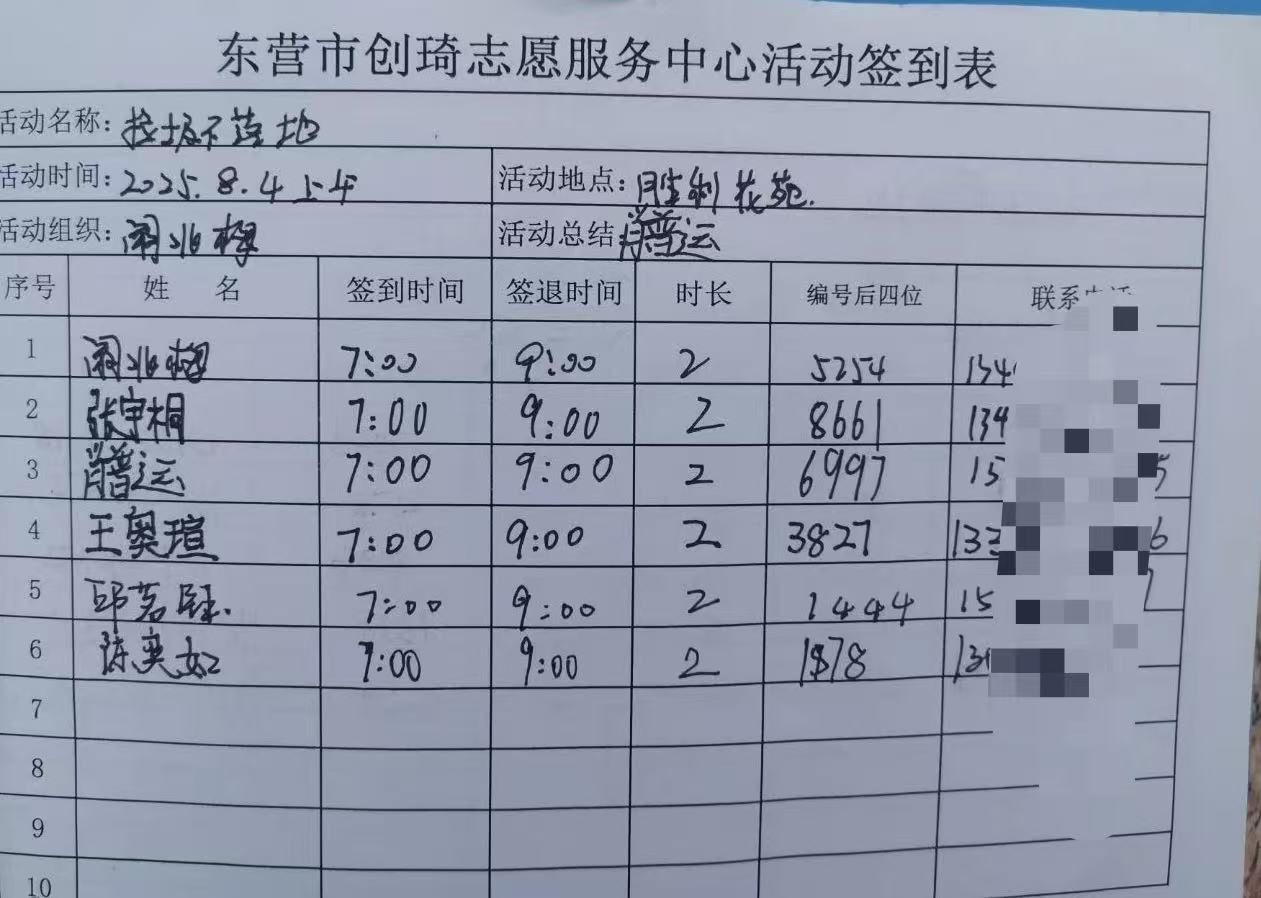 东营市创琦志愿服务中心活动签到表
活动名称：垃圾不落地
活动时间：2025.8.4上午 活动地点：胜利花苑.
活动组织：闹兆梅 活动总结 肖普运
序号 姓 名 签到时间 签退时间 时长 编号后四位 联系
1 7:00 9:00 2 5254 134
2 张宇桐 7:00 9:00 2 8661 134
3 肖普运 7:00 9:00 2 6997 15 5
4 王奥瑄 7:00 9:00 2 3827 133 6
5 邱茗 7:00 9:00 2 1444 15
6 陈奕如 7:00 9:00 2 1878 13
7
8
9
10